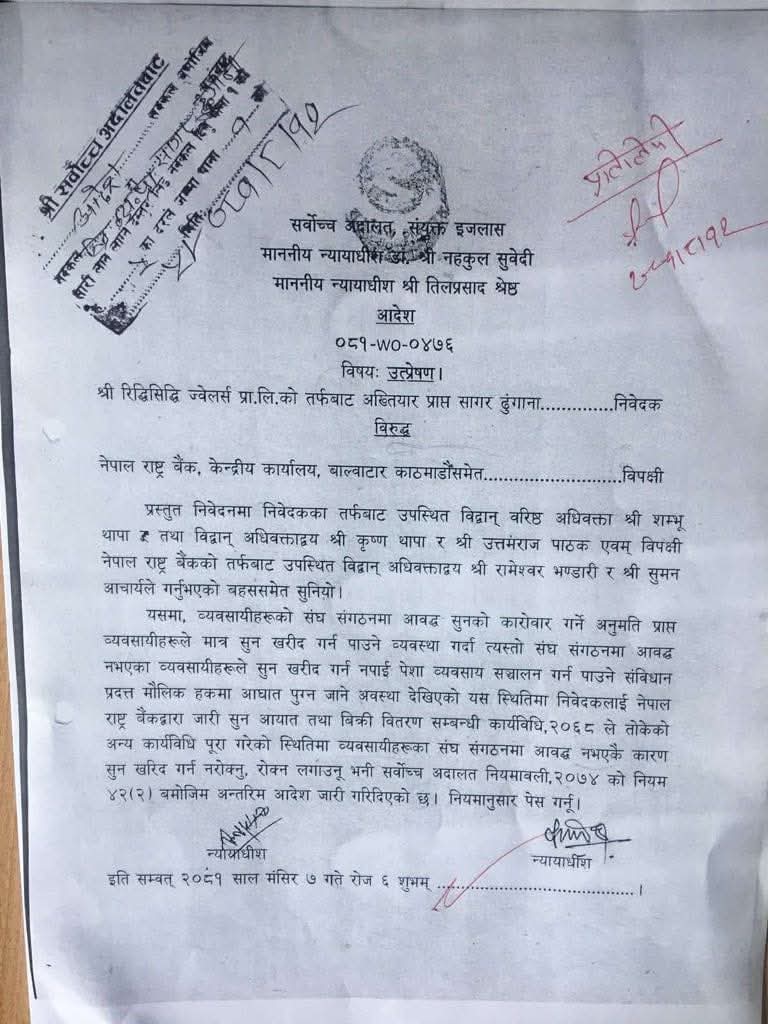 श्री सर्वोच्च अदालतबाट
प्रतिलिपी
सर्वोच्च अदालत, संयुक्त इजलास
माननीय न्यायाधीश डा. श्री नहकुल सुवेदी
माननीय न्यायाधीश श्री तिलप्रसाद श्रेष्ठ
आदेश
०८१-WO-०४७६
विषयः उत्प्रेषण।
श्री रिद्धिसिद्धि ज्वेलर्स प्रा.लि.को तर्फबाट अख्तियार प्राप्त सागर ढुंगाना..............निवेदक
विरुद्ध
नेपाल राष्ट्र बैंक, केन्द्रीय कार्यालय, बाल्वाटार काठमाडौंसमेत...........................विपक्षी
प्रस्तुत निवेदनमा निवेदकका तर्फबाट उपस्थित विद्वान् वरिष्ठ अधिवक्ता श्री शम्भू
थापा र तथा विद्वान् अधिवक्ताद्वय श्री कृष्ण थापा र श्री उत्तमराज पाठक एवम् विपक्षी
नेपाल राष्ट्र बैंकको तर्फबाट उपस्थित विद्वान् अधिवक्ताद्वय श्री रामेश्वर भण्डारी र श्री सुमन
आचार्यले गर्नुभएको बहससमेत सुनियो।
यसमा, व्यवसायीहरूको संघ संगठनमा आवद्ध सुनको कारोवार गर्ने अनुमति प्राप्त
व्यवसायीहरूले मात्र सुन खरीद गर्न पाउने व्यवस्था गर्दा त्यस्तो संघ संगठनमा आवद्ध
नभएका व्यवसायीहरूले सुन खरीद गर्न नपाई पेशा व्यवसाय सञ्चालन गर्न पाउने संविधान
प्रदत्त मौलिक हकमा आघात पुग्न जाने अवस्था देखिएको यस स्थितिमा निवेदकलाई नेपाल
राष्ट्र बैंकद्वारा जारी सुन आयात तथा बिक्री वितरण सम्बन्धी कार्यविधि,२०६८ ले तोकेको
अन्य कार्यविधि पूरा गरेको स्थितिमा व्यवसायीहरूका संघ संगठनमा आवद्ध नभएकै कारण
सुन खरिद गर्न नरोक्नु, रोक्न लगाउनू भनी सर्वोच्च अदालत नियमावली,२०७४ को नियम
४२(२) बमोजिम अन्तरिम आदेश जारी गरिदिएको छ। नियमानुसार पेस गर्नू।
न्यायाधीश
न्यायाधीश
इति सम्वत् २०८१ साल मंसिर ७ गते रोज ६ शुभम् .....................................।